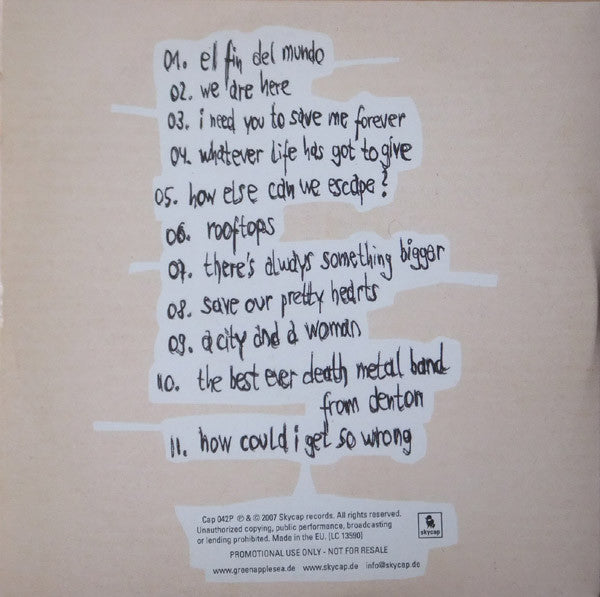 01. el fin del mundo
02. we are here
03. i need you to save me forever
04. whatever life has got to give
05. how else can we escape?
06. rooftops
07. there's always something bigger
08. save our pretty hearts
09. a city and a woman
10. the best ever death metal band
from denton
11. how could i get so wrong
Cap 042P ℗ & © 2007 Skycap records. All rights reserved.
Unauthorized copying, public performance, broadcasting
or lending prohibited. Made in the EU. [LC 13590]
skycap
PROMOTIONAL USE ONLY - NOT FOR RESALE
www.greenapplesea.de www.skycap.de info@skycap.de